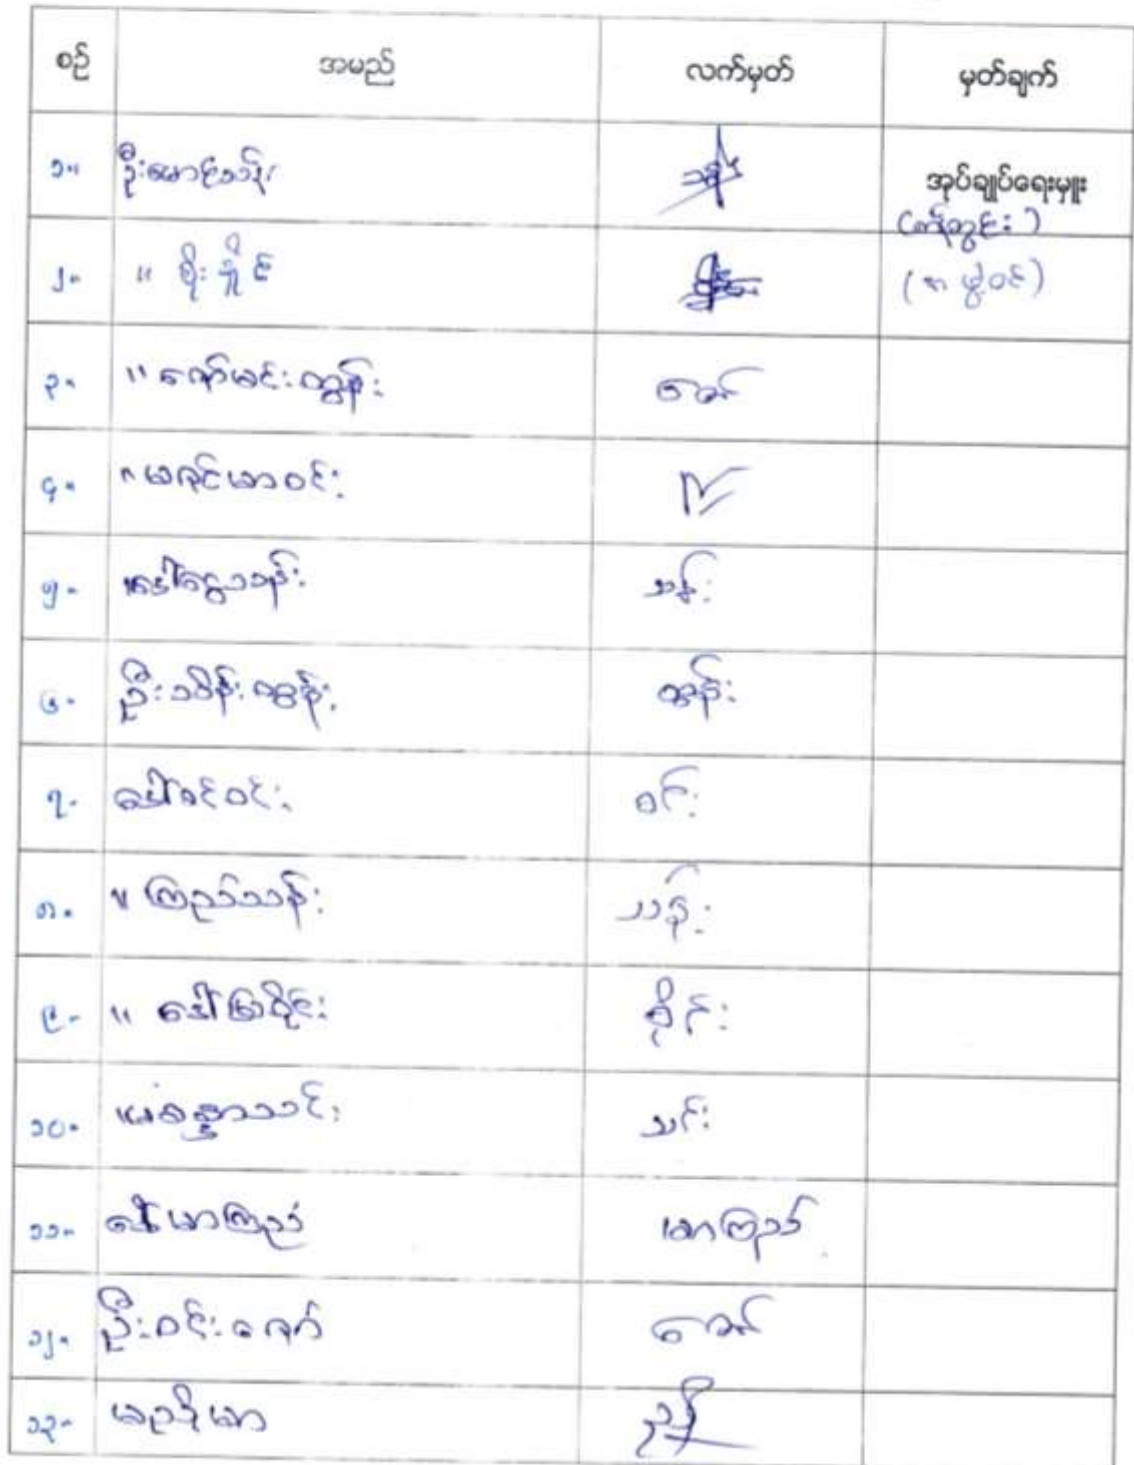 စဉ် အမည် လက်မှတ် မှတ်ချက်
၁။ ဦးမောင်သိန်း အုပ်ချုပ်ရေးမှူး
(ကံကွင်း)
၂။ " စိုးနိုင် (ဖွဲ့ဝင်)
၃။ " ဇော်မင်းထွန်း ဇော်
၄။ " မခင်မာဝင်း
၅။ ဒေါ်ငွေသန်း သန်း
၆။ ဦးသိန်းထွန်း ထွန်း
၇။ ဒေါ်ခင်ဝင်း ဝင်း
၈။ " ကြည်သန်း သန်း
၉။ " ဒေါ်မြခိုင်း ခိုင်း
၁၀။ မစန္ဒာသင်း သင်း
၁၁။ ဒေါ်မာကြည် မာကြည်
၁၂။ ဦးဝင်းဇော် ဇော်
၁၃။ မညိုမာ ညို